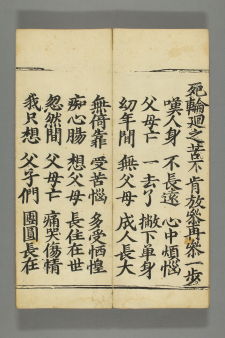 死輪廻之苦不肯放参再叅一步
嘆人身 不長遠 心中煩惱
父母亡 一去了 撇下單身
幼年間 無父母 成人長大
無倚靠 受苦惱 多受恓惶
痴心腸 想父母 長住在世
忽然間 父母亡 痛哭傷情
我只想 父子們 團圓長在